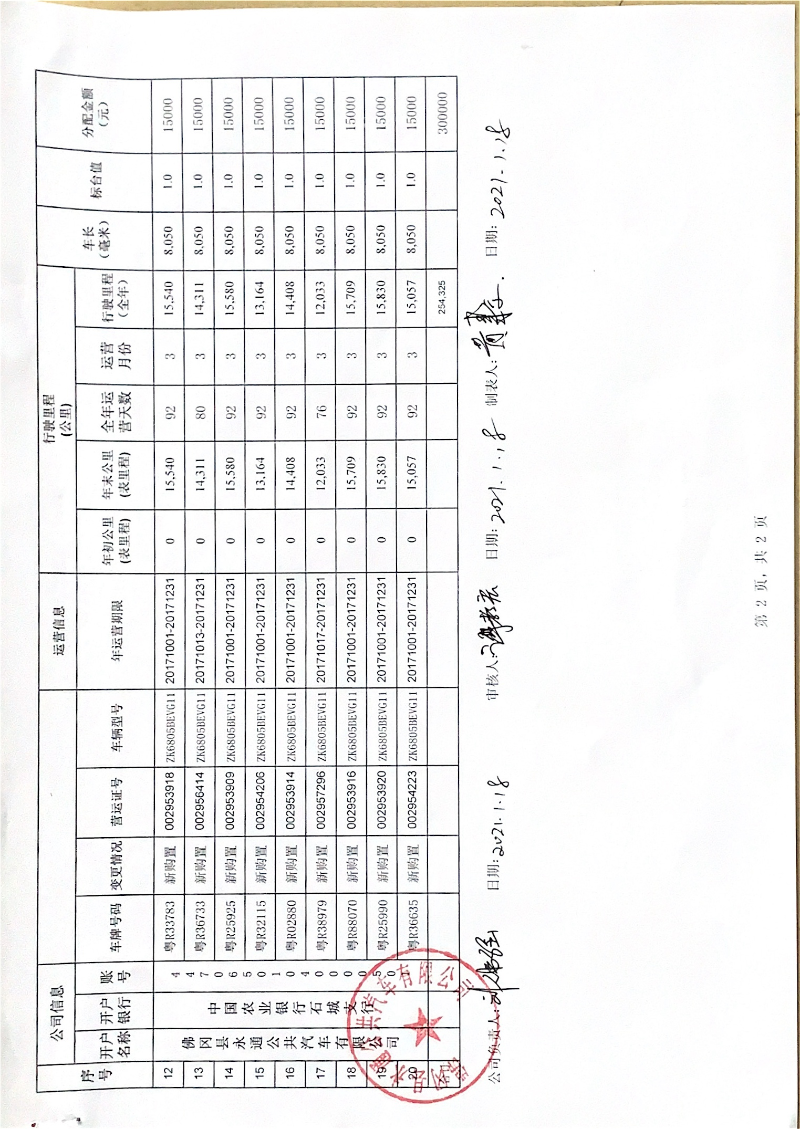 公司信息 运营信息 行驶里程(公里) 车长(毫米) 标台值 分配金额(元)
序号 开户名称 开户银行 账号 车牌号码 变更情况 营运证号 车辆型号 年运营期限 年初公里(表里程) 年末公里(表里程) 全年运营天数 运营月份 行驶里程(全年)
佛冈县永通公共汽车有限公司
中国农业银行石城支行
12 粤R33783 新购置 002953918 ZK6805BEVG11 20171001-20171231 0 15,540 92 3 15,540 8,050 1.0 15000
13 粤R36733 新购置 002956414 ZK6805BEVG11 20171013-20171231 0 14,311 80 3 14,311 8,050 1.0 15000
14 粤R25925 新购置 002953909 ZK6805BEVG11 20171001-20171231 0 15,580 92 3 15,580 8,050 1.0 15000
15 粤R32115 新购置 002954206 ZK6805BEVG11 20171001-20171231 0 13,164 92 3 13,164 8,050 1.0 15000
16 粤R02880 新购置 002953914 ZK6805BEVG11 20171001-20171231 0 14,408 92 3 14,408 8,050 1.0 15000
17 粤R38979 新购置 002957296 ZK6805BEVG11 20171017-20171231 0 12,033 76 3 12,033 8,050 1.0 15000
18 粤R88070 新购置 002953916 ZK6805BEVG11 20171001-20171231 0 15,709 92 3 15,709 8,050 1.0 15000
19 粤R25990 新购置 002953920 ZK6805BEVG11 20171001-20171231 0 15,830 92 3 15,830 8,050 1.0 15000
20 粤R36635 新购置 002954223 ZK6805BEVG11 20171001-20171231 0 15,057 92 3 15,057 8,050 1.0 15000
254,325 300000
公司负责人: 日期: 2021.1.18 审核人: 日期: 2021.1.18 制表人: 日期: 2021.1.18
第 2 页，共 2 页